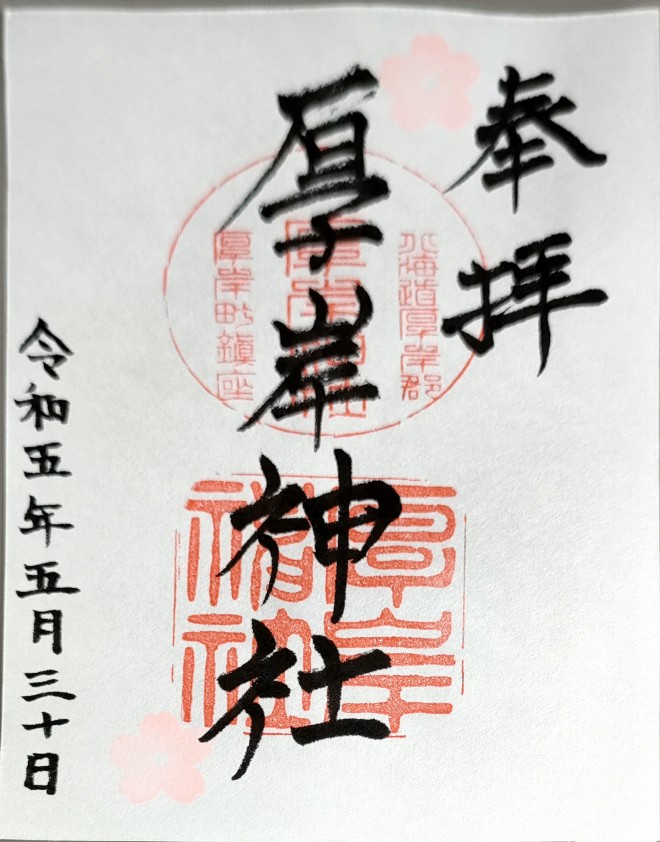 奉拝
北海道厚岸郡
厚岸神社
厚岸神社
厚岸町鎮座
厚岸神社
令和五年五月三十日